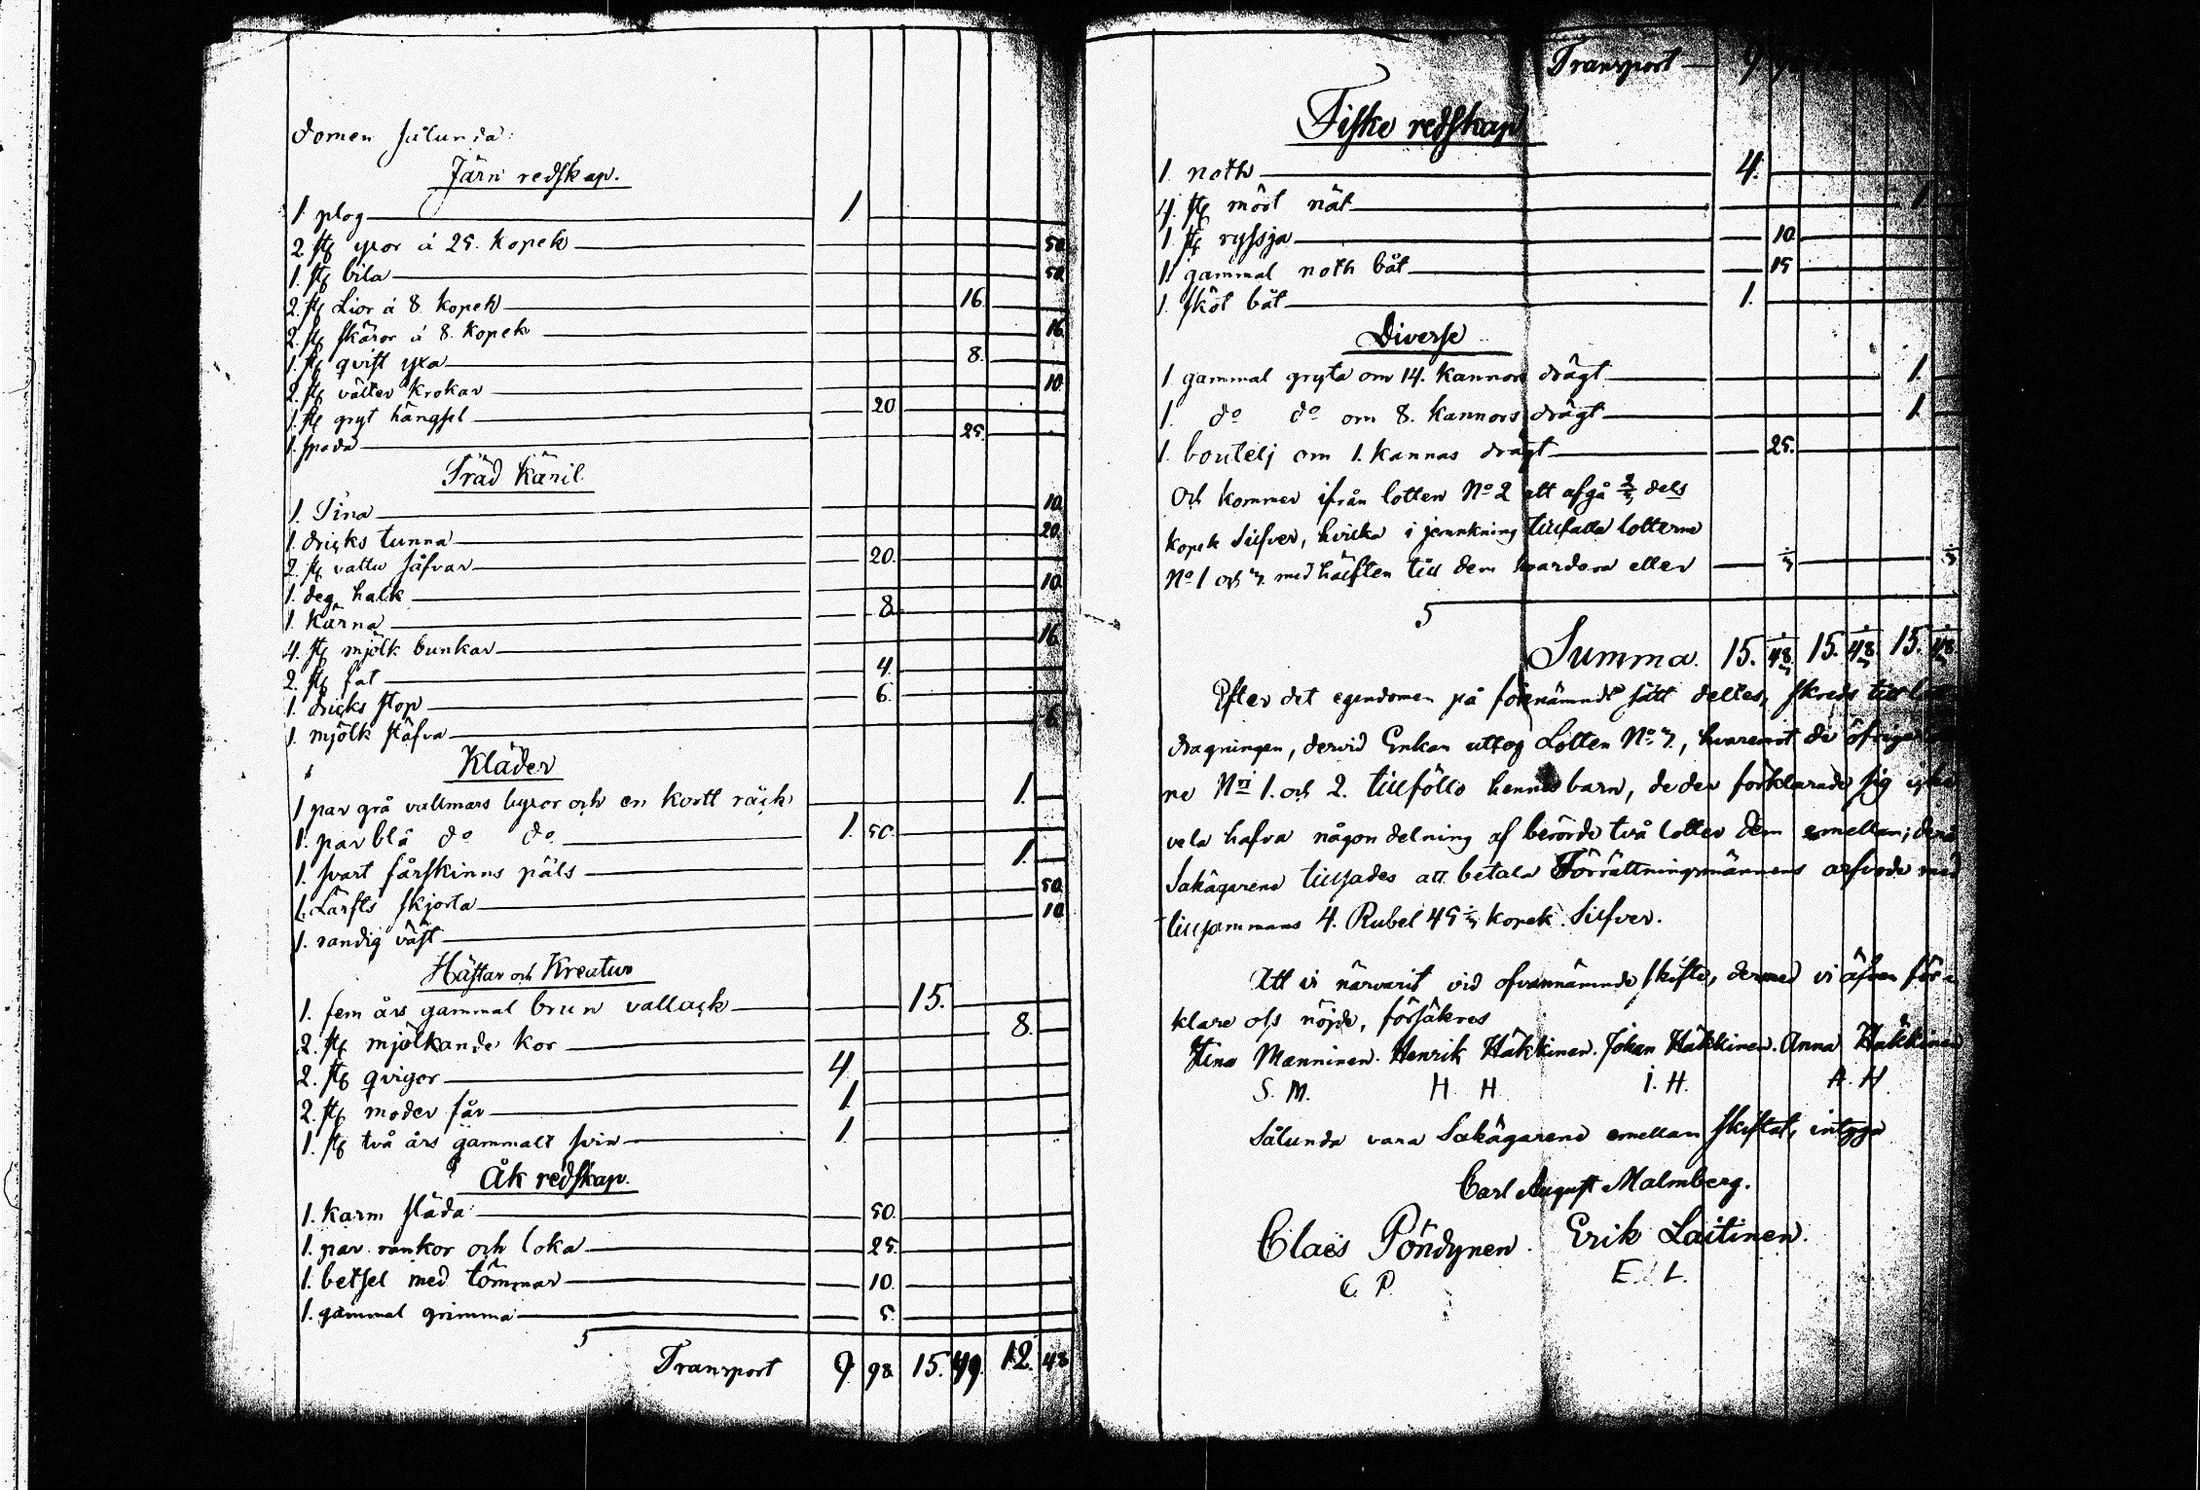 domen sålunda:
Järn redskap.
1. plog 1.
2. st yxor á 25. kopek 50.
1. st bila 50.
2. st Lior á 8. kopek 16.
2. st skäror á 8. kopek 16.
1. st qvist yxa 8.
2. st krokar 10.
1. st gryt hängsel 20
1. spada 25.
Träd Käril.
1. Tina 10.
1. dricks tunna 20.
2. st vattu såfvar 20.
1. deg halk 10.
1. kärna 8.
4. st mjölk bunkar 16.
2. st fat 4.
1. dricks stop 6.
1. mjölk stäfva 6.
Kläder
1 par grå vallmars byxor och en kortt röck 1.
1. par blå do do 1. 50.
1. svart fårskinns päls 1.
1. Lärfts skjorta 50.
1. randig väst 10.
Hästar och Kreatur
1. fem års gammal brun vallack 15.
2. st mjölkande kor 8.
2. st qvigor 4.
2. st moder får 1.
1. st två års gammalt svin 1.
Åk redskap.
1. karm släda 50.
1. par rankor och loka 25.
1. betsel med tömmar 10.
1. gammal grimma 5.
Transport 9. 98. 15. 49. 12. 48
Transport 9
Fiske redskap
1. noth 4.
4. st mört nät 1.
1. st ryssja 10.
1. gammal noth båt 15
1. sköt båt 1.
Diverse
1 gammal gryta om 14. kannors drägt 1.
1. do do om 8. kannors drägt 1.
1. boutelj om 1. kannas drägt 25.
Och kommer ifrån lotten No 2 att afgå 2/3 dels
kopek Silfver, hvilka i jemnkning tillfalla lotterne
No 1 och 3. med hälften till dem hvardera eller 1/3 1/3
Summa. 15. 48 1/3. 15. 48 1/3. 15. 48 1/3
Efter det egendomen på förenämnde sätt deltes, skreds till
dragningen, dervid Enkan uttog Lotten No 3., hvaremot de öfriga
ne Nri 1. och 2. tillföllo hennes barn, de der förklarade sig icke
vela hafva någon delning af berörde två lotter dem emellan;
Sakägarene tillsades att betala Förrättningsmännens arfvode med
tillsammans 4. Rubel 45 1/3 kopek Silfver.
Att vi närvarit vid ofvannämnde skifte, dermed vi äfven för-
klare oss nöjde, försäkres
Stina Manninen. Henrik Häkkinen. Johan Häkkinen. Anna Häkkinen
S. M. H. H. I. H. A. H
Sålunda vara Sakägarene emellan skiftat, intyga
Carl August Malmberg.
Claës Pöndynen. Erik Laitinen.
C. P. E. L.